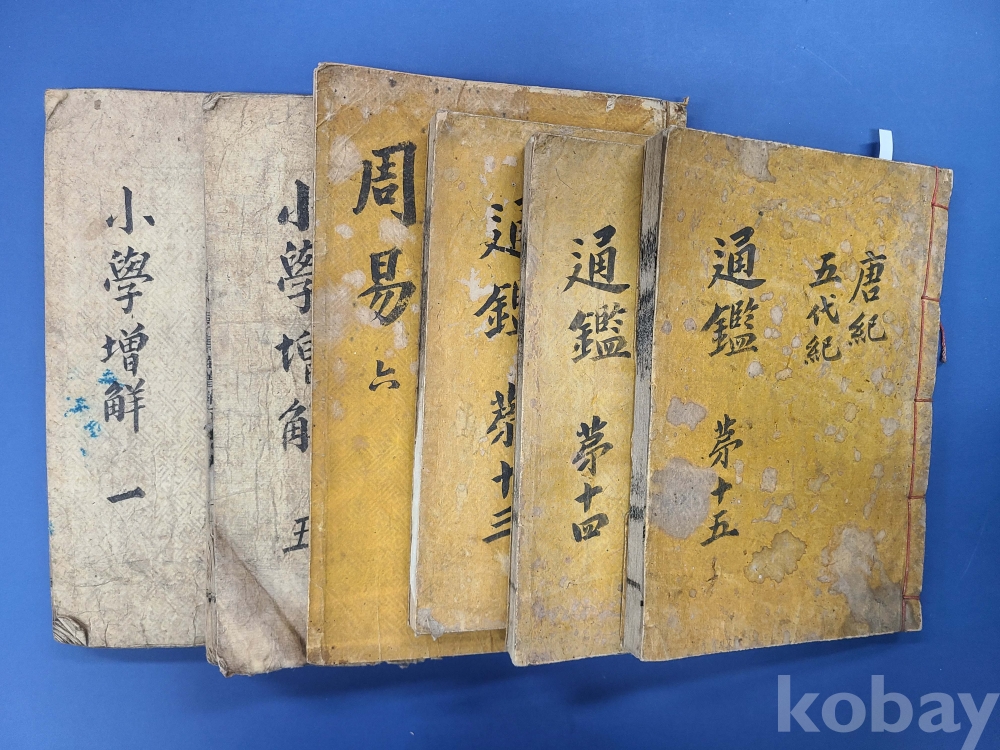 小學增解
一
小學增解
五
周易
六
通鑑
第十三
通鑑
第十四
唐紀
五代紀
通鑑
第十五
kobay